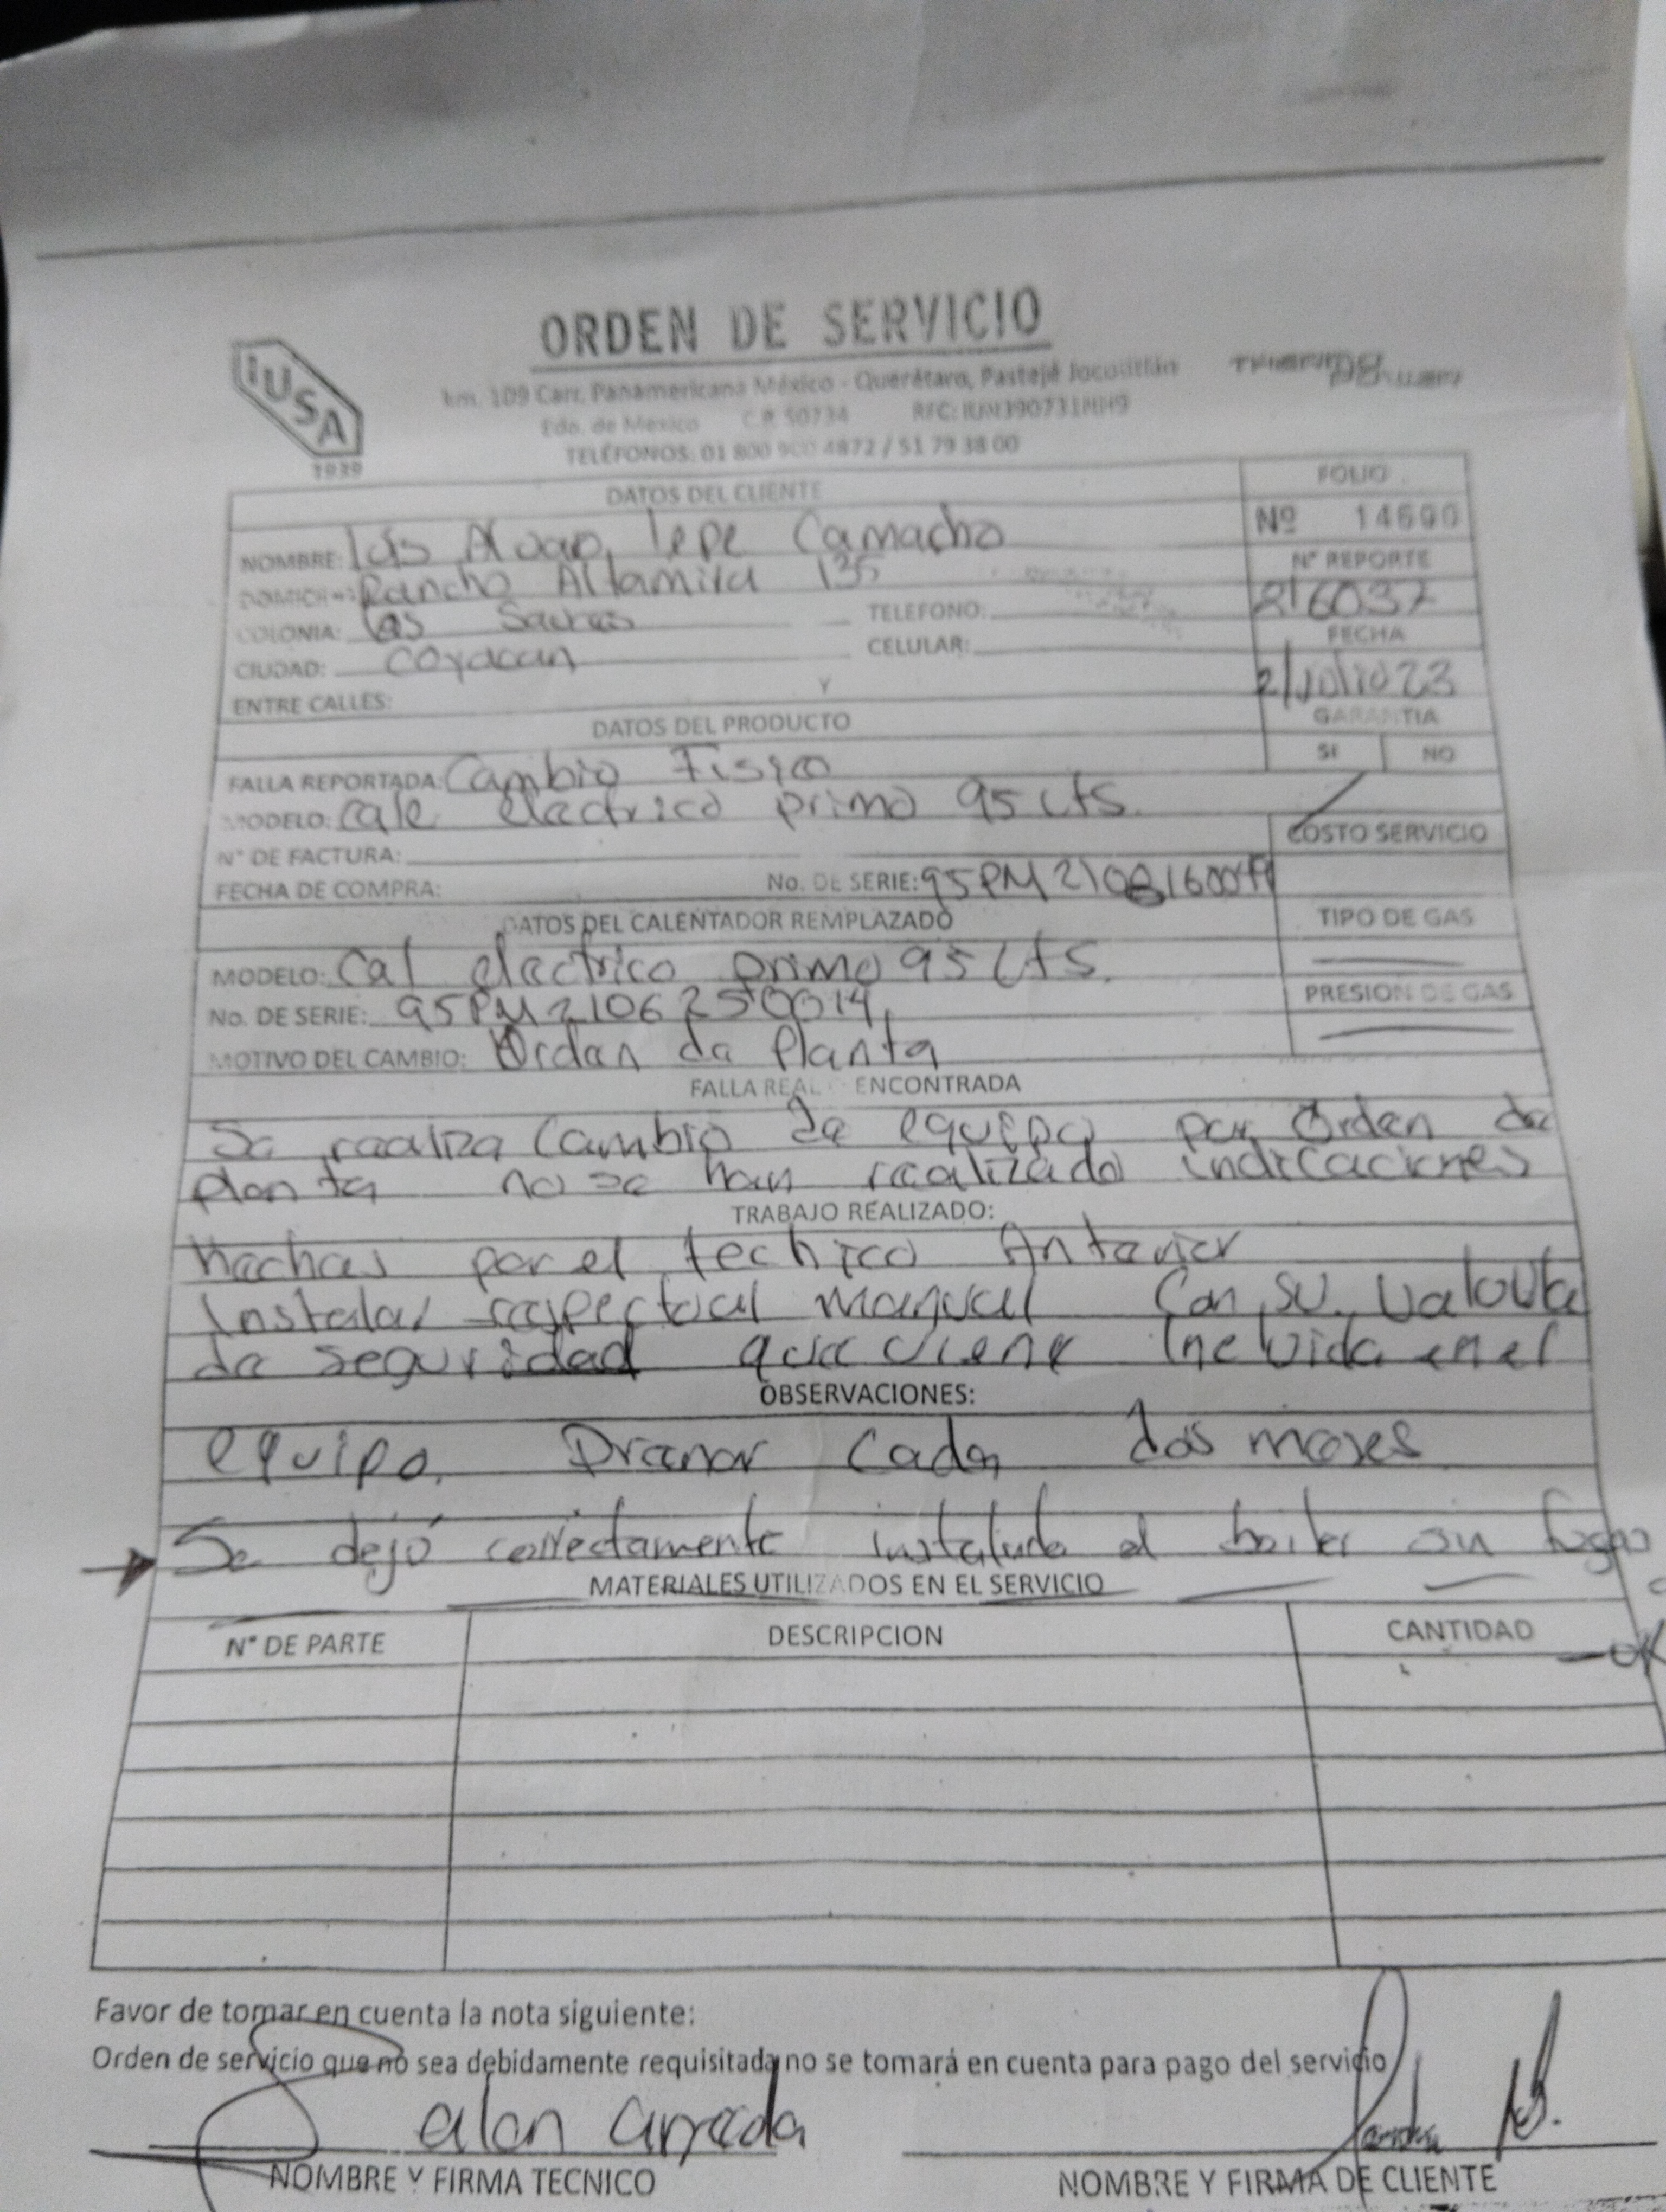 ORDEN DE SERVICIO
IUSA
1939
km. 109 Carr. Panamericana México - Querétaro, Pastejé Jocotitlán
THERMO POWER
Edo. de Mexico C.P. 50734 RFC:
TELÉFONOS: 01 800 900 4872 / 51 79 38 00
DATOS DEL CLIENTE
FOLIO
Nº 14690
NOMBRE: Camacho
Nº REPORTE
DOMICILIO: Rancho Altamira 135
216037
COLONIA: Las
TELEFONO:
FECHA
CIUDAD: Coyacan
CELULAR:
2/Julio 23
ENTRE CALLES: Y
GARANTIA
DATOS DEL PRODUCTO
SI NO
FALLA REPORTADA: Cambio Fisico
MODELO: cale electrico primo 95 Lts.
COSTO SERVICIO
N° DE FACTURA:
FECHA DE COMPRA: No. DE SERIE:
DATOS DEL CALENTADOR REMPLAZADO
TIPO DE GAS
MODELO: Cal electrico primo 95 Lts.
No. DE SERIE: 95PM2106250014
PRESION DE GAS
MOTIVO DEL CAMBIO: Orden de Planta
FALLA REAL ENCONTRADA
Se realiza Cambio de equipo por Orden de
planta no se han realizado indicaciones
TRABAJO REALIZADO:
hechas por el technico Anterior
Instalar manual Con su Valvula
de seguridad que viene Incluida en el
OBSERVACIONES:
equipo. Drenar Cada dos meses
Se dejó correctamente instalado el boiler sin fugas
MATERIALES UTILIZADOS EN EL SERVICIO
N° DE PARTE DESCRIPCION CANTIDAD
-OK
Favor de tomar en cuenta la nota siguiente:
Orden de servicio que no sea debidamente requisitada no se tomará en cuenta para pago del servicio
alan arreda
NOMBRE Y FIRMA TECNICO NOMBRE Y FIRMA DE CLIENTE